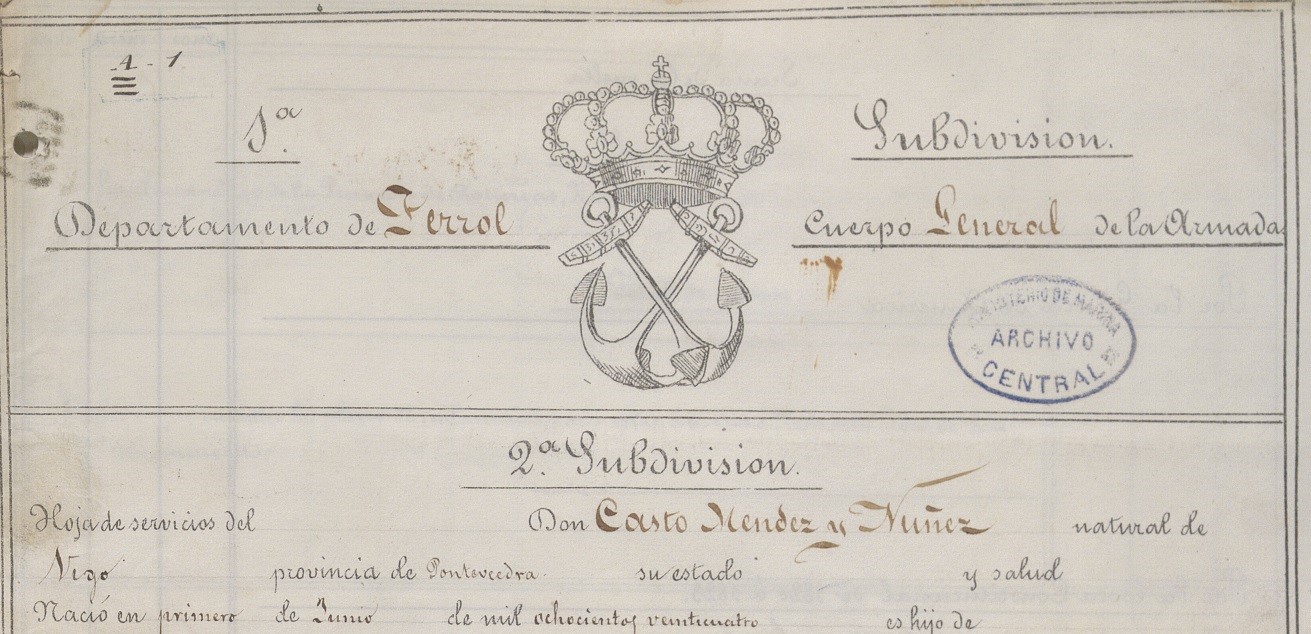 A - 1
1.ª Subdivision.
Departamento de Ferrol Cuerpo General de la Armada
MINISTERIO DE MARINA
ARCHIVO
CENTRAL
2.ª Subdivision.
Hoja de servicios del Don Casto Mendez y Nuñez natural de
Vigo provincia de Pontevedra. su estado y salud
Nació en primero de Junio de mil ochocientos veinticuatro es hijo de